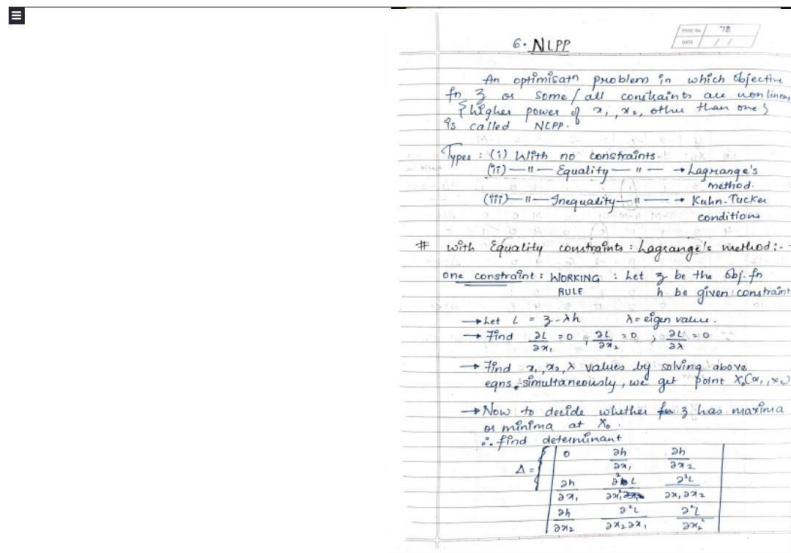 PAGE No. 78
DATE / /
6. NLPP
An optimisatn problem in which objective
fn z or some/all constraints are nonlinear
{higher power of x₁, x₂, other than one}
is called NLPP.
Types: (i) With no constraints.
(ii) —〃— Equality —〃— → Lagrange's
method.
(iii) —〃— Inequality —〃— → Kuhn-Tucker
conditions
# with Equality constraints: Lagrange's method:-
one constraint: WORKING : Let z be the obj. fn
RULE h be given constraint
→ Let L = z - λh λ = eigen value.
→ Find ∂L/∂x₁ = 0, ∂L/∂x₂ = 0, ∂L/∂λ = 0
→ Find x₁, x₂, λ values by solving above
eqns. simultaneously, we get point X₀(x₁, x₂)
→ Now to decide whether z has maxima
or minima at X₀.
∴ find determinant
Δ = | 0 ∂h/∂x₁ ∂h/∂x₂ |
| ∂h/∂x₁ ∂²L/∂x₁² ∂²L/∂x₁∂x₂ |
| ∂h/∂x₂ ∂²L/∂x₂∂x₁ ∂²L/∂x₂² |